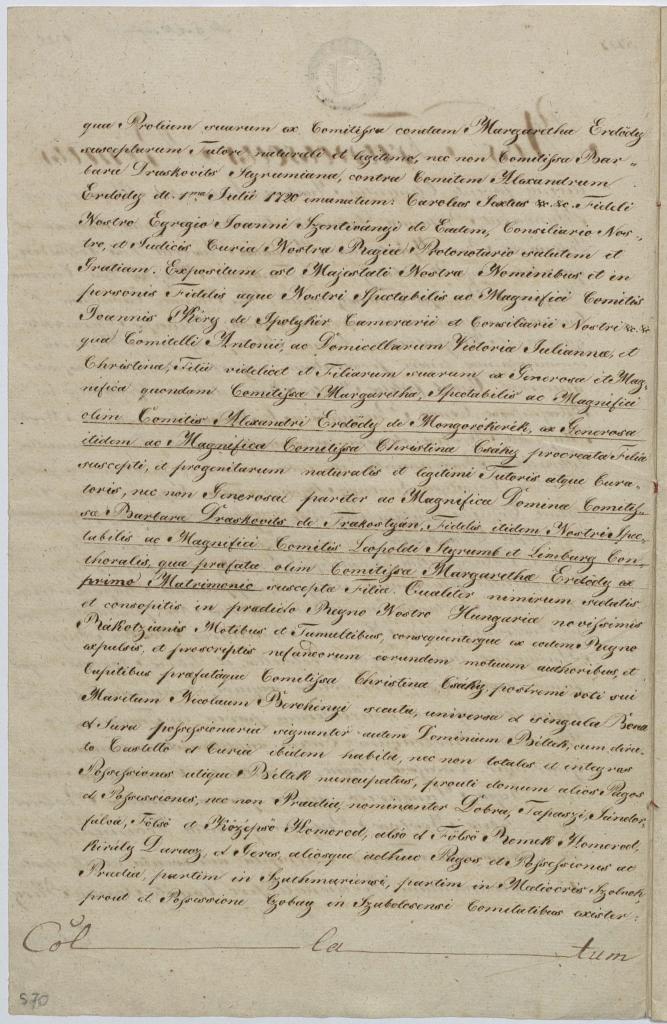 qua Prolium suarum ex Comitissa condam Margaretha Erdődy
susceptarum Tutore naturali et legitimo, nec non Comitissa Bar-
bara Draskovits Styrumiana, contra Comitem Alexandrum
Erdődy de 1ma Julii 1720 emanatum: Carolus Sextus &c &c. Fideli
Nostro Egregio Joanni Szentiványi de Eadem, Consiliario Nos-
tro, et Judicis Curiæ Nostræ Regiæ Protonotario salutem et
Gratiam. Expositum est Majestati Nostræ Nominibus et in
personis Fidelis æque Nostri Spectabilis ac Magnifici Comitis
Joannis Kéry de Ipolykér Camerarii et Consiliarii Nostri &c &c
qua Comitelli Antonii, ac Domicellarum Victoria Julianna, et
Christina, Filii videlicet et Filiarum suarum ex Generosa et Mag-
nifica quondam Comitissa Margaretha, Spectabilis ac Magnifici
olim Comitis Alexandri Erdődy de Mongorókerék, ex Generosa
itidem ac Magnifica Comitissa Christina Csáky procreata Filia
suscepti, et progenitarum naturalis et legitimi Tutoris atque Cura-
toris, nec non Generosæ pariter ac Magnificæ Dominæ Comitis-
sæ Barbaræ Draskovits de Trakostyán, Fidelis itidem Nostri Spec-
tabilis ac Magnifici Comitis Leopoldi Styrumb et Limburg Con-
thoralis, qua præfatæ olim Comitissæ Margarethæ Erdődy ex
primo Matrimonio susceptæ Filiæ. Qualiter nimirum sedatis
et consopitis in prædicto Regno Nostro Hungariæ novissimis
Rákotzianis Motibus et Tumultibus, consequenterque ex eodem Regno
expulsis, et proscriptis nefandorum eorundem motuum authoribus, et
Capitibus præfatæque Comitissa Christina Csáky, postremi voti sui
Maritum Nicolaum Berchényi secuta, universa et singula Bona
et Jura possessionaria signanter autem Dominium Béltek, cum diru-
to Castello et Curia ibidem habita, nec non totales et integras
Possessiones utique Béltek nuncupatas, prouti domum alios Pagos
et Possessiones, nec non Prædia, nominanter Dobra, Tapaszi, Sándor-
falva, Fölső et Középső Homorod, alsó et Fölső Remek Homorod,
király Daraoz, et Geres, aliosque adhuc Pagos et Possessiones ac
Prædia, partim in Szathmariensi, partim in Mediocris Szolnok
prout et Possessione Gobay in Szabolcsensi Comitatibus existen-
Col la tum
570